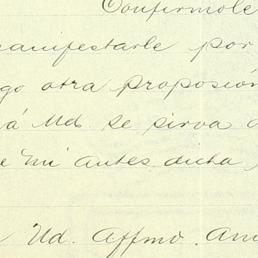 Confirmole
manifestarle por
go otra proposión
á Ud se sirva
e mi antes dicha
Ud. Affmo. Am